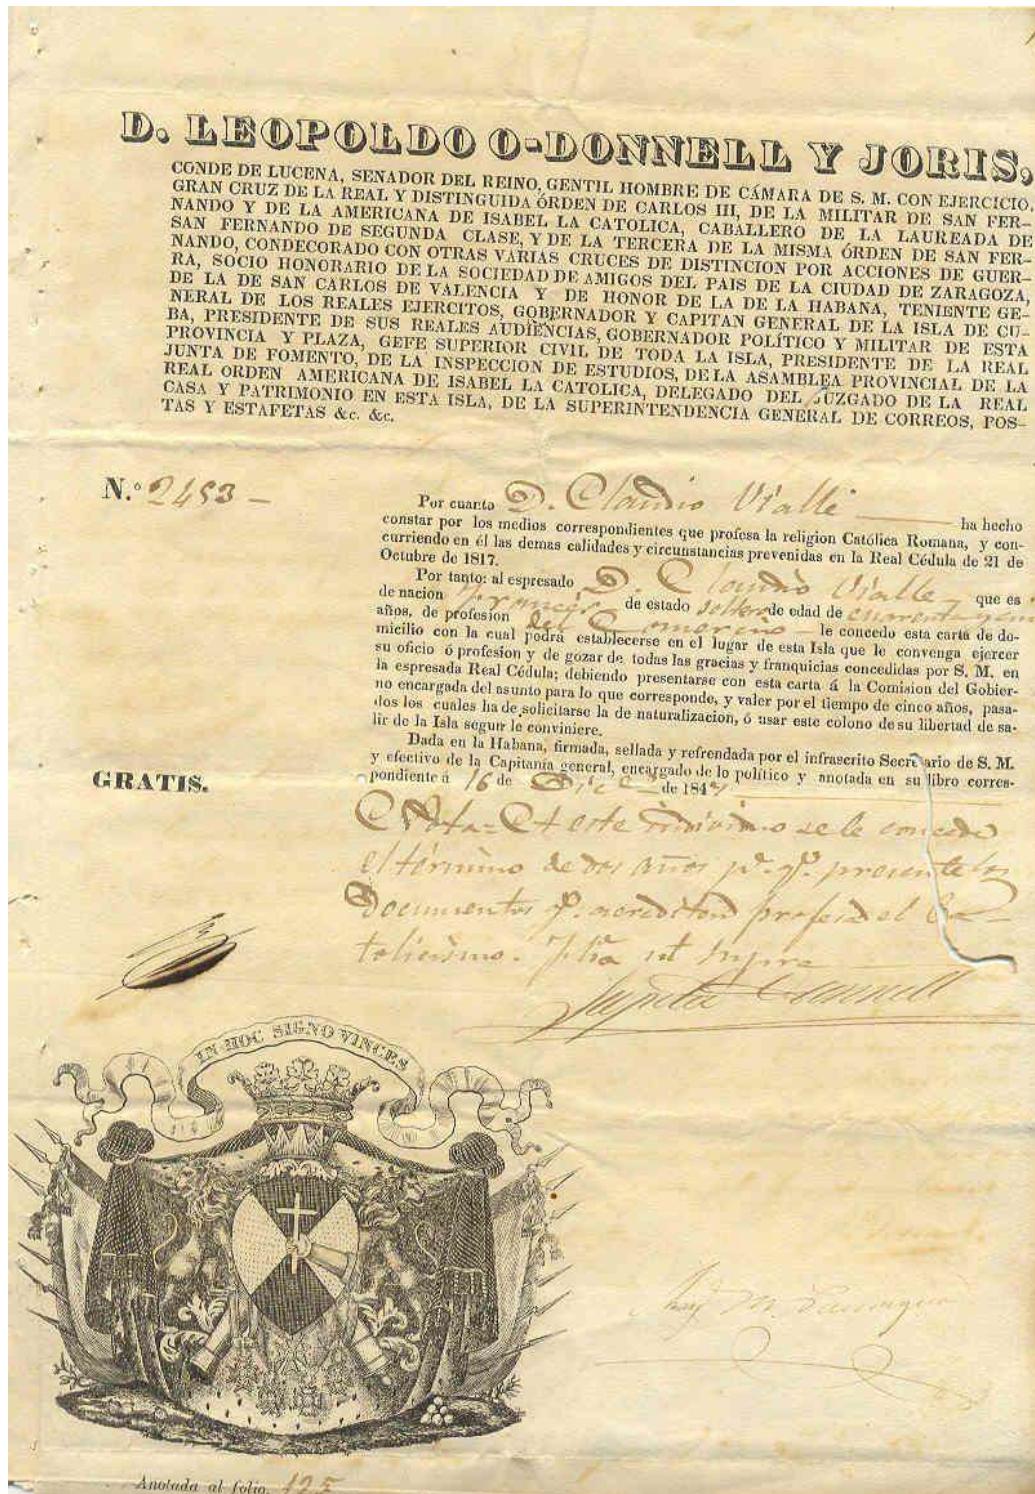 D. LEOPOLDO O-DONNELL Y JORIS,
CONDE DE LUCENA, SENADOR DEL REINO, GENTIL HOMBRE DE CÁMARA DE S. M. CON EJERCICIO,
GRAN CRUZ DE LA REAL Y DISTINGUIDA ÓRDEN DE CARLOS III, DE LA MILITAR DE SAN FER-
NANDO Y DE LA AMERICANA DE ISABEL LA CATOLICA, CABALLERO DE LA LAUREADA DE
SAN FERNANDO DE SEGUNDA CLASE, Y DE LA TERCERA DE LA MISMA ÓRDEN DE SAN FER-
NANDO, CONDECORADO CON OTRAS VARIAS CRUCES DE DISTINCION POR ACCIONES DE GUER-
RA, SOCIO HONORARIO DE LA SOCIEDAD DE AMIGOS DEL PAIS DE LA CIUDAD DE ZARAGOZA,
DE LA DE SAN CARLOS DE VALENCIA Y DE HONOR DE LA DE LA HABANA, TENIENTE GE-
NERAL DE LOS REALES EJERCITOS, GOBERNADOR Y CAPITAN GENERAL DE LA ISLA DE CU-
BA, PRESIDENTE DE SUS REALES AUDIENCIAS, GOBERNADOR POLÍTICO Y MILITAR DE ESTA
PROVINCIA Y PLAZA, GEFE SUPERIOR CIVIL DE TODA LA ISLA, PRESIDENTE DE LA REAL
JUNTA DE FOMENTO, DE LA INSPECCION DE ESTUDIOS, DE LA ASAMBLEA PROVINCIAL DE LA
REAL ORDEN AMERICANA DE ISABEL LA CATOLICA, DELEGADO DEL JUZGADO DE LA REAL
CASA Y PATRIMONIO EN ESTA ISLA, DE LA SUPERINTENDENCIA GENERAL DE CORREOS, POS-
TAS Y ESTAFETAS &c. &c.
N.º 2453 -
Por cuanto D. Claudio Vialle ha hecho
constar por los medios correspondientes que profesa la religion Católica Romana, y con-
curriendo en él las demas calidades y circunstancias prevenidas en la Real Cédula de 21 de
Octubre de 1817.
Por tanto: al espresado D. Claudio Vialle que es
de nacion francés de estado soltero de edad de cuarenta y
años, de profesion del Comercio le concedo esta carta de do-
micilio con la cual podrá establecerse en el lugar de esta Isla que le convenga ejercer
su oficio ó profesion y de gozar de todas las gracias y franquicias concedidas por S. M. en
la espresada Real Cédula; debiendo presentarse con esta carta á la Comision del Gobier-
no encargada del asunto para lo que corresponde, y valer por el tiempo de cinco años, pasa-
dos los cuales ha de solicitarse la de naturalizacion, ó usar este colono de su libertad de sa-
lir de la Isla segun le conviniere.
Dada en la Habana, firmada, sellada y refrendada por el infrascrito Secretario de S. M.
y efectivo de la Capitanía general, encargado de lo político y anotada en su libro corres-
pondiente á 16 de Dice de 184
GRATIS.
Nota = A este individuo se le concede
el término de dos años pa. qe. presente los
Documentos qe. acrediten profesa el Ca-
tolicismo. fha ut supra
IN HOC SIGNO VINCES
Anotada al folio. 125